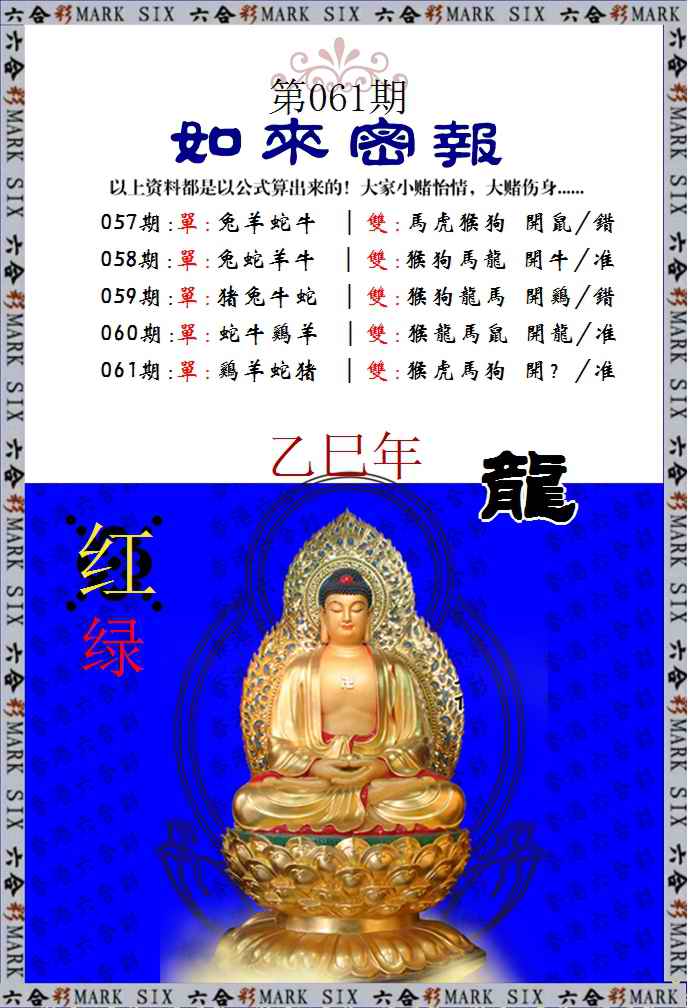 六合彩MARK SIX 六合彩MARK SIX 六合彩MARK SIX 六合彩MARK SIX
第061期
如來密報
以上资料都是以公式算出来的！大家小赌怡情，大赌伤身......
057期:單:兔羊蛇牛 |雙:馬虎猴狗 開鼠/錯
058期:單:兔蛇羊牛 |雙:猴狗馬龍 開牛/准
059期:單:猪兔牛蛇 |雙:猴狗龍馬 開鷄/錯
060期:單:蛇牛鷄羊 |雙:猴龍馬鼠 開龍/准
061期:單:鷄羊蛇猪 |雙:猴虎馬狗 開？/准
乙巳年
龍
红
绿
六合彩MARK SIX 六合彩MARK SIX 六合彩MARK SIX 六合彩MARK SIX